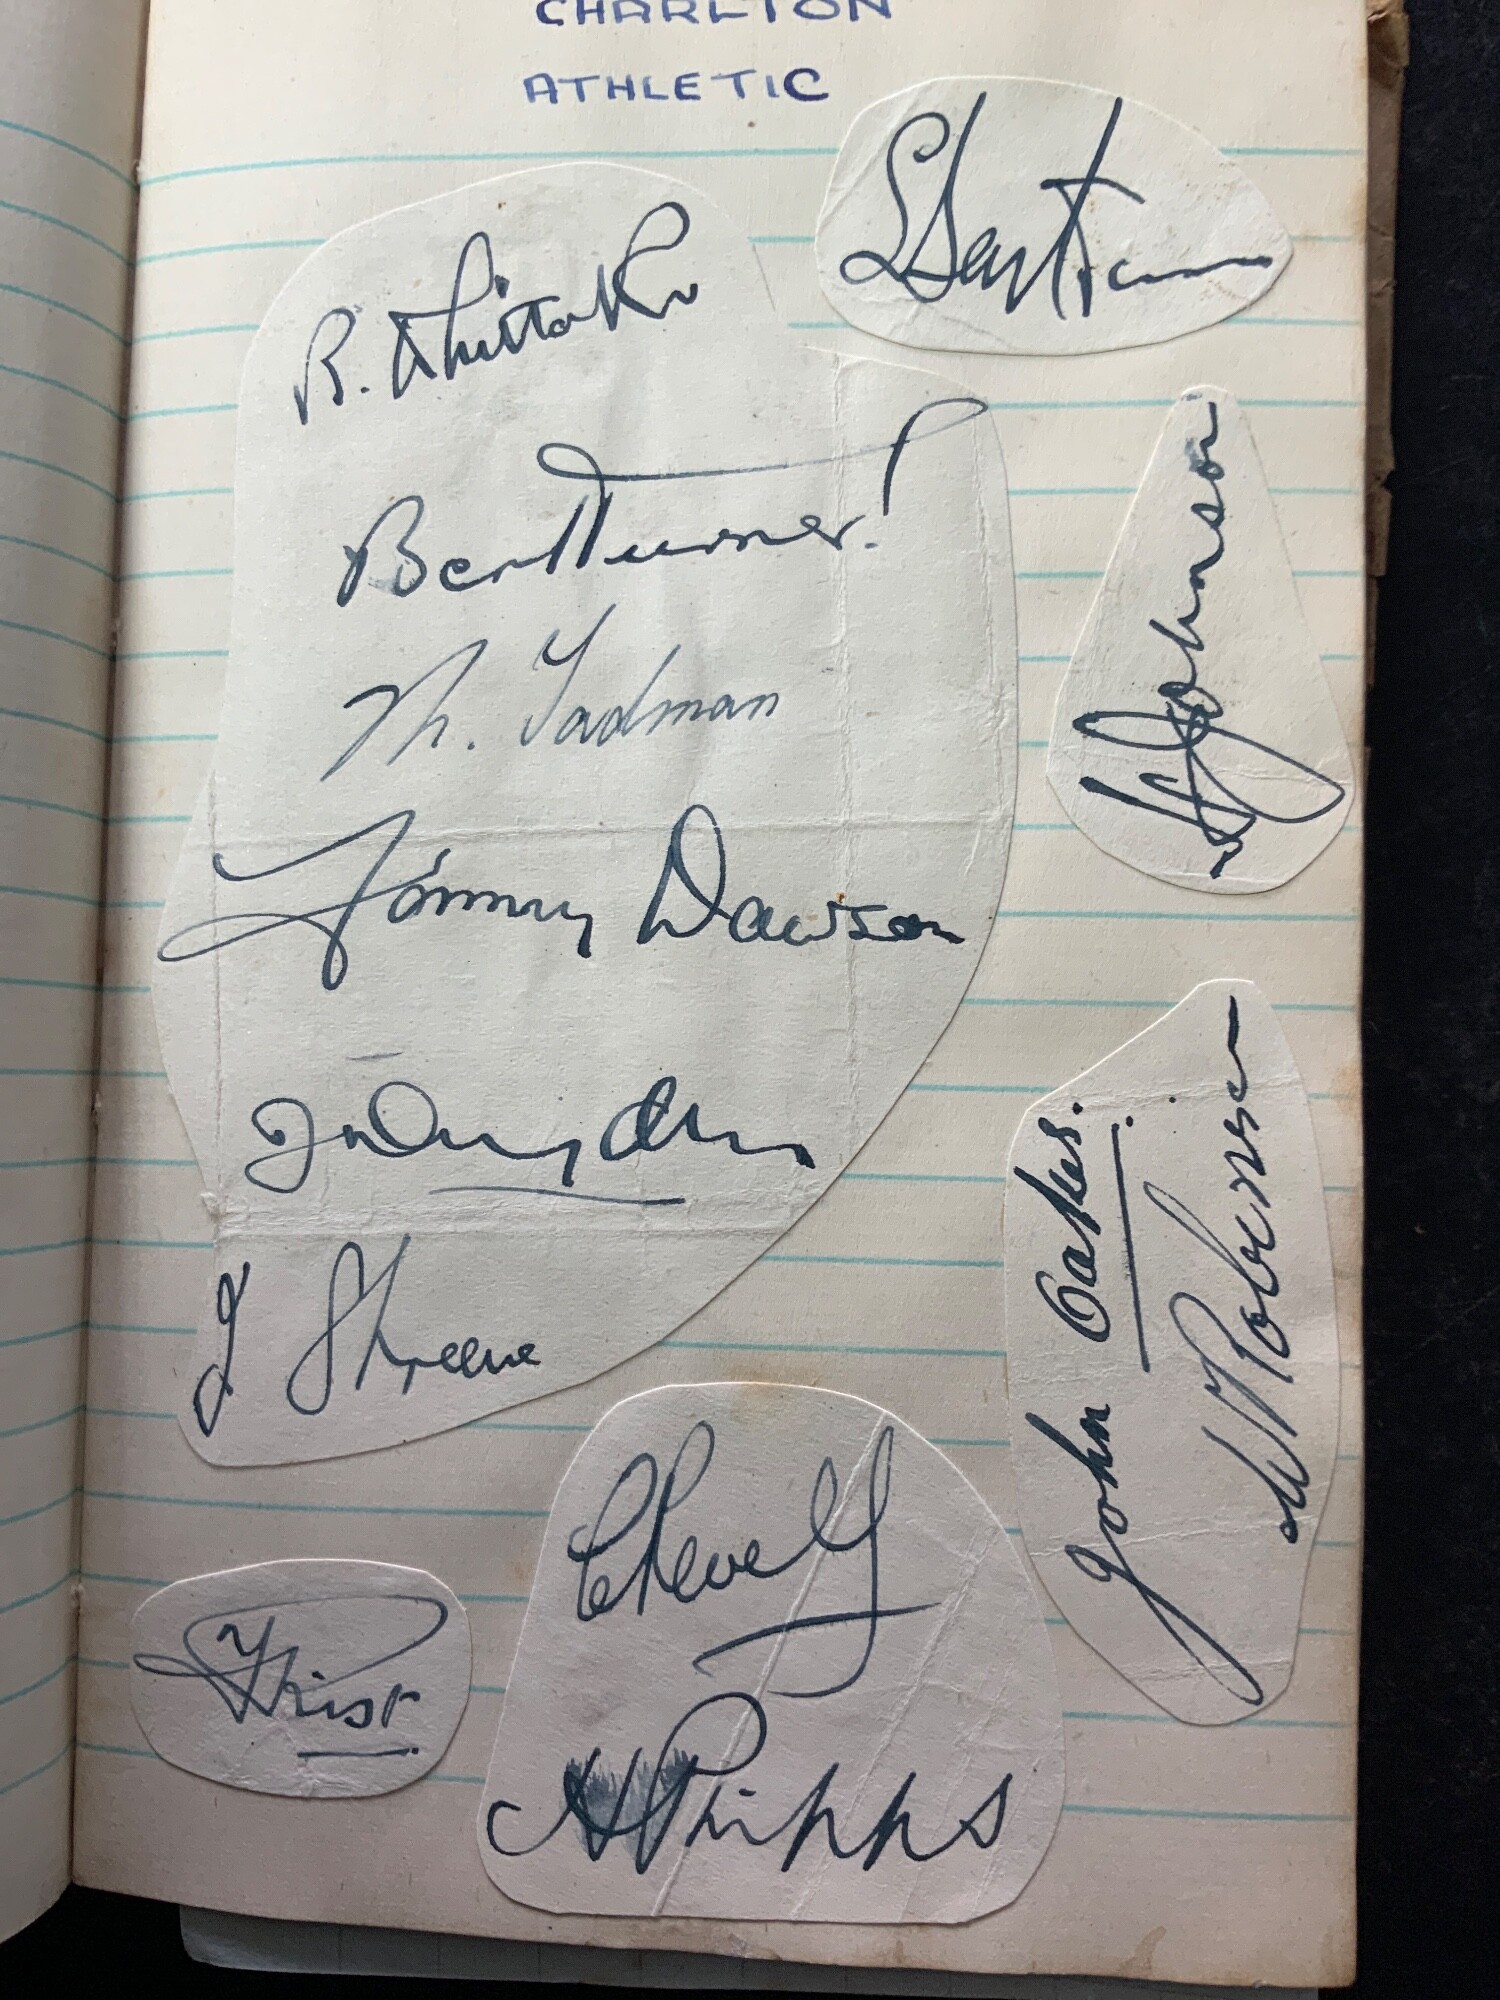 CHARLTON
ATHLETIC
R. Whittaker
Bert Turner!
M. Tadman
Tommy Dawson
J Shreeve
S Bartram
H Johnson
John Oakes.
W Robinson
C Revell
H Phipps